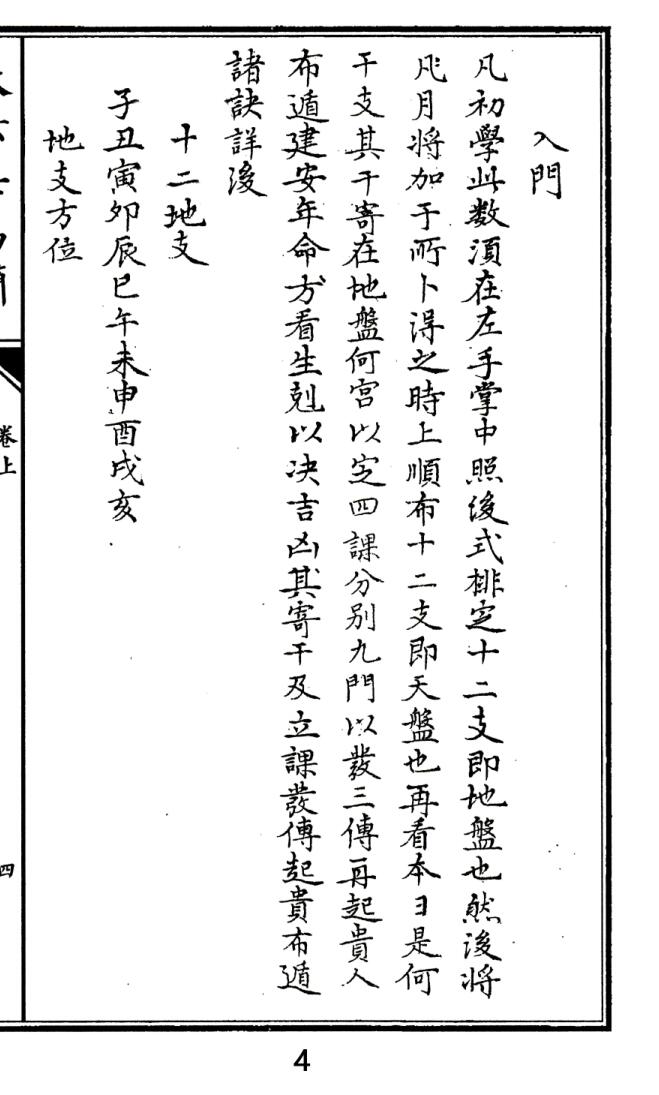 入門
凡初學此数湏在左手掌中照後式排定十二支即地盤也然後將
凡月将加于所卜得之時上順布十二支即天盤也再看本日是何
干支其干寄在地盤何宮以定四課分别九門以發三傳再起貴人
布遁建安年命方看生剋以决吉凶其寄干及立課發傳起貴布遁
諸訣詳後
十二地支
子丑寅卯辰巳午未申酉戌亥
地支方位
卷上
四
4